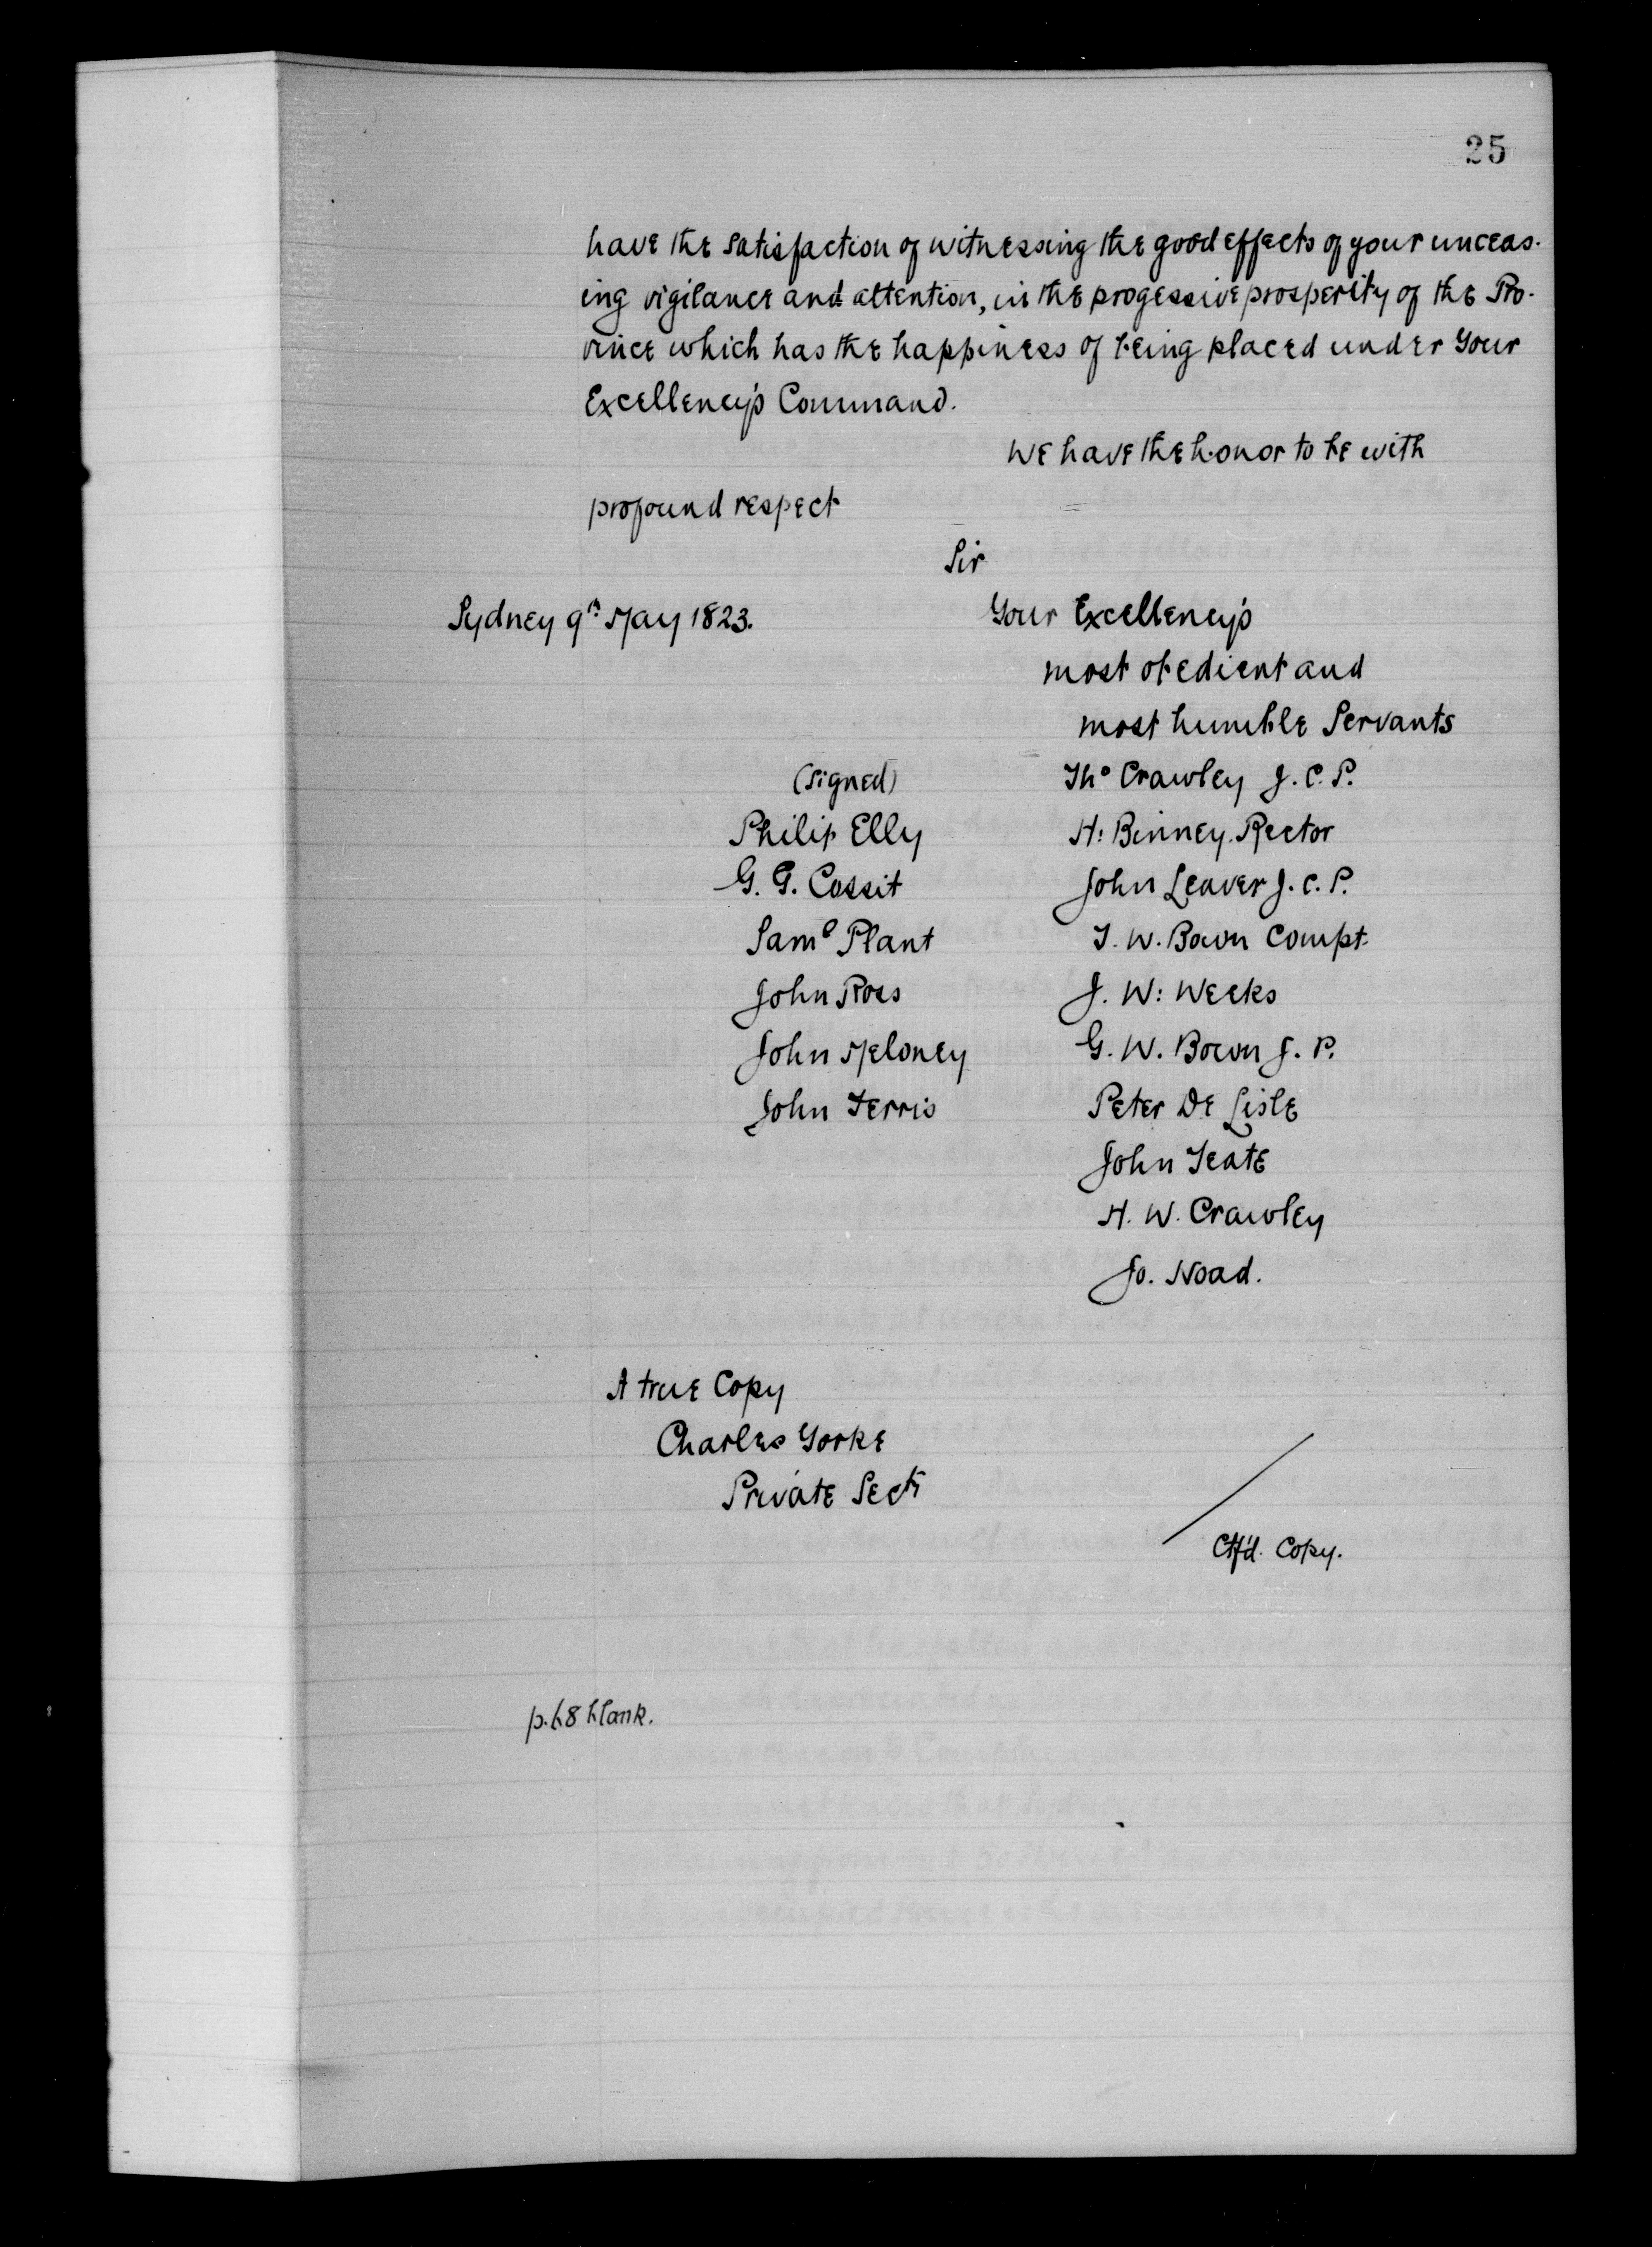 25
have the satisfaction of witnessing the good effects of your unceas-
ing vigilance and attention, in the progessive prosperity of the Pro-
vince which has the happiness of being placed under Your
Excellency's Command.
We have the honor to be with
profound respect
Sir
Sydney 9th May 1823.
Your Excellency's
most obedient and
most humble Servants
(signed)
Philip Elly
G. G. Cossit
Saml Plant
John Ross
John Meloney
John Ferris
Tho Crawley J. C. P.
H: Binney. Rector
John Leaver J. C. P.
T. W. Bown Compt.
J. W: Weeks
G. W. Bown J. P.
Peter De Lisle
John Teate
H. W. Crawley
Jo. Noad.
A true Copy
Charles Yorke
Private Secty
Ctf'd. Copy.
p. 68 blank.